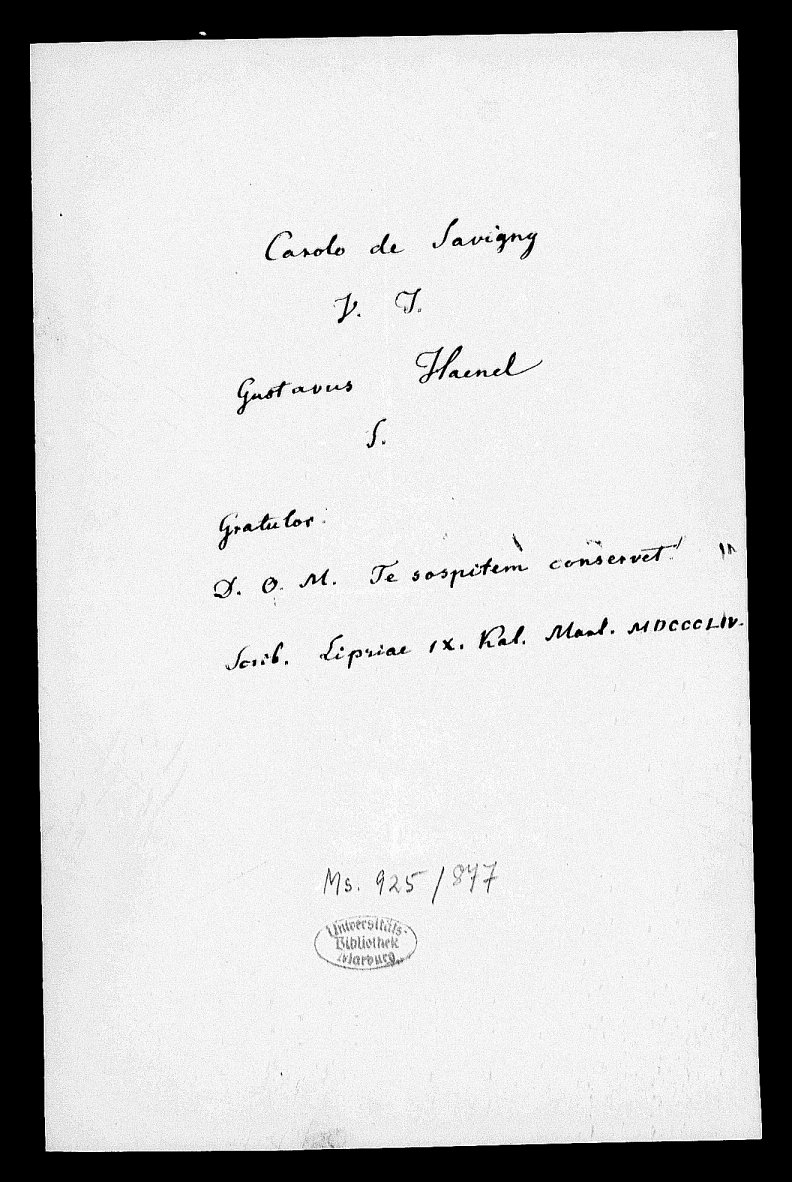 Carolo de Savigny
V. I.
Gustavus Haenel
S.
Gratulor.
D. O. M. Te sospitem conservet!
Scrib. Lipsiae IX. Kal. Mart. MDCCCLIV.
Ms. 925/877
Universitäts-
Bibliothek
Marburg